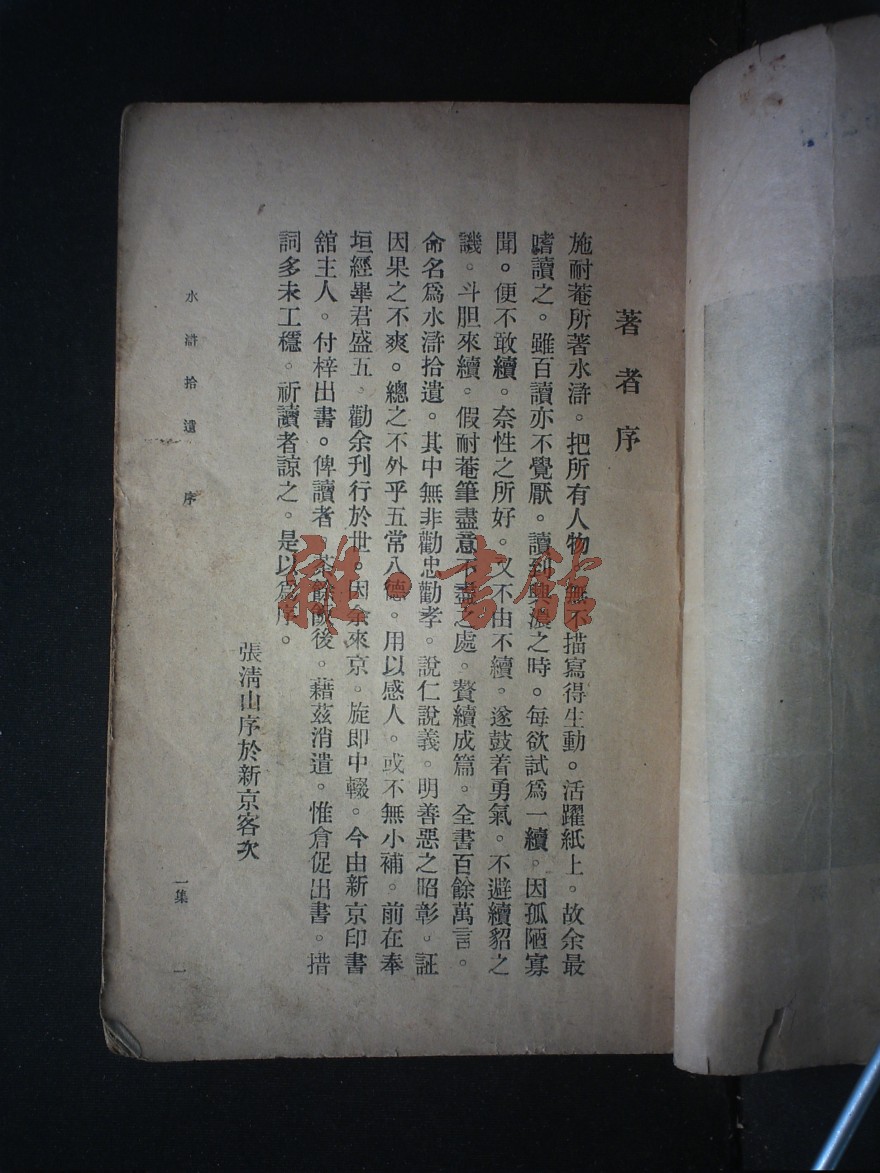 著者序
施耐菴所著水滸。把所有人物。無不描寫得生動。活躍紙上。故余最
嗜讀之。雖百讀亦不覺厭。讀到興濃之時。每欲試爲一續。因孤陋寡
聞。便不敢續。奈性之所好。又不由不續。遂鼓着勇氣。不避續貂之
譏。斗胆來續。假耐菴筆盡意不盡之處。贅續成篇。全書百餘萬言。
命名爲水滸拾遺。其中無非勸忠勸孝。說仁說義。明善惡之昭彰。証
因果之不爽。總之不外乎五常八德。用以感人。或不無小補。前在奉
垣經畢君盛五。勸余刊行於世。因余來京。旋即中輟。今由新京印書
舘主人。付梓出書。俾讀者。茶餘飯後。藉茲消遣。惟倉促出書。措
詞多未工穩。祈讀者諒之。是以爲序。
張淸山序於新京客次
水滸拾遺 序 一集 一
雅·書館